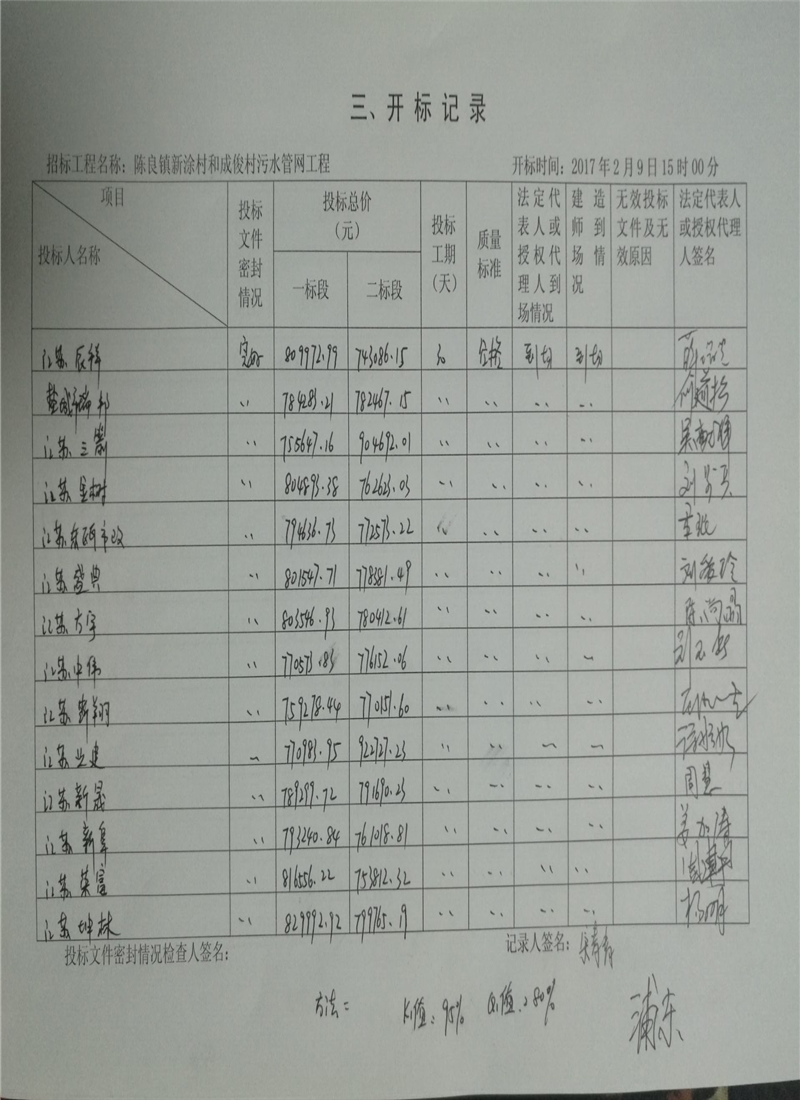 三、开标记录
招标工程名称：陈良镇新涂村和成俊村污水管网工程 开标时间：2017年2月9日15时00分
项目
投标人名称
投标文件密封情况
投标总价（元）
一标段 二标段
投标工期（天）
质量标准
法定代表人或授权代理人到场情况
建造师到场情况
无效投标文件及无效原因
法定代表人或授权代理人签名
江苏辰祥 完好 809972.99 743086.15 30 合格 到场 到场
784283.21 782467.15
江苏三嵩 755647.16 904692.01
江苏金树 804893.38 762623.03
794636.73 772573.22
江苏盛典 801547.71 778381.49 刘
江苏方宇 803546.93 780412.61
江苏中伟 770573.83 776152.06
江苏新翔 759278.44 770151.60
江苏业建 770983.95 922727.23
江苏新晟 789299.72 791690.23 周慧
江苏新阜 793240.84 761018.81
江苏荣富 816556.22 753812.32
江苏坤林 829992.92 799765.19 杨
投标文件密封情况检查人签名： 记录人签名：
方法二 K值：95% Q1值：80%
浦东